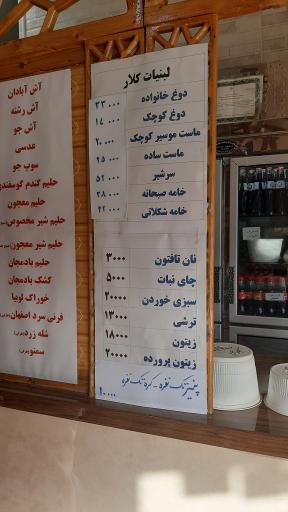 آش آبادان
آش رشته
آش جو
عدسی
سوپ جو
حلیم گندم گوسفندی
حلیم معجون
حلیم شیر مخصوص
حلیم شیر معجون
حلیم بادمجان
کشک بادمجان
خوراک لوبیا
فرنی سرد اصفهان
شله زرد
سمنو
لبنیات کلار
دوغ خانواده ۳۳۰۰۰
دوغ کوچک
ماست موسیر کوچک ۲۰۰۰۰
ماست ساده ۲۵۰۰۰
سرشیر ۵۲۰۰۰
خامه صبحانه ۳۸۰۰۰
خامه شکلاتی ۴۲۰۰۰
نان تافتون ۳۰۰۰
چای نبات ۵۰۰۰
سبزی خوردن ۲۰۰۰۰
ترشی ۱۳۰۰۰
زیتون ۱۸۰۰۰
زیتون پرورده ۲۰۰۰۰
پنیر تک نفره - کره تک نفره